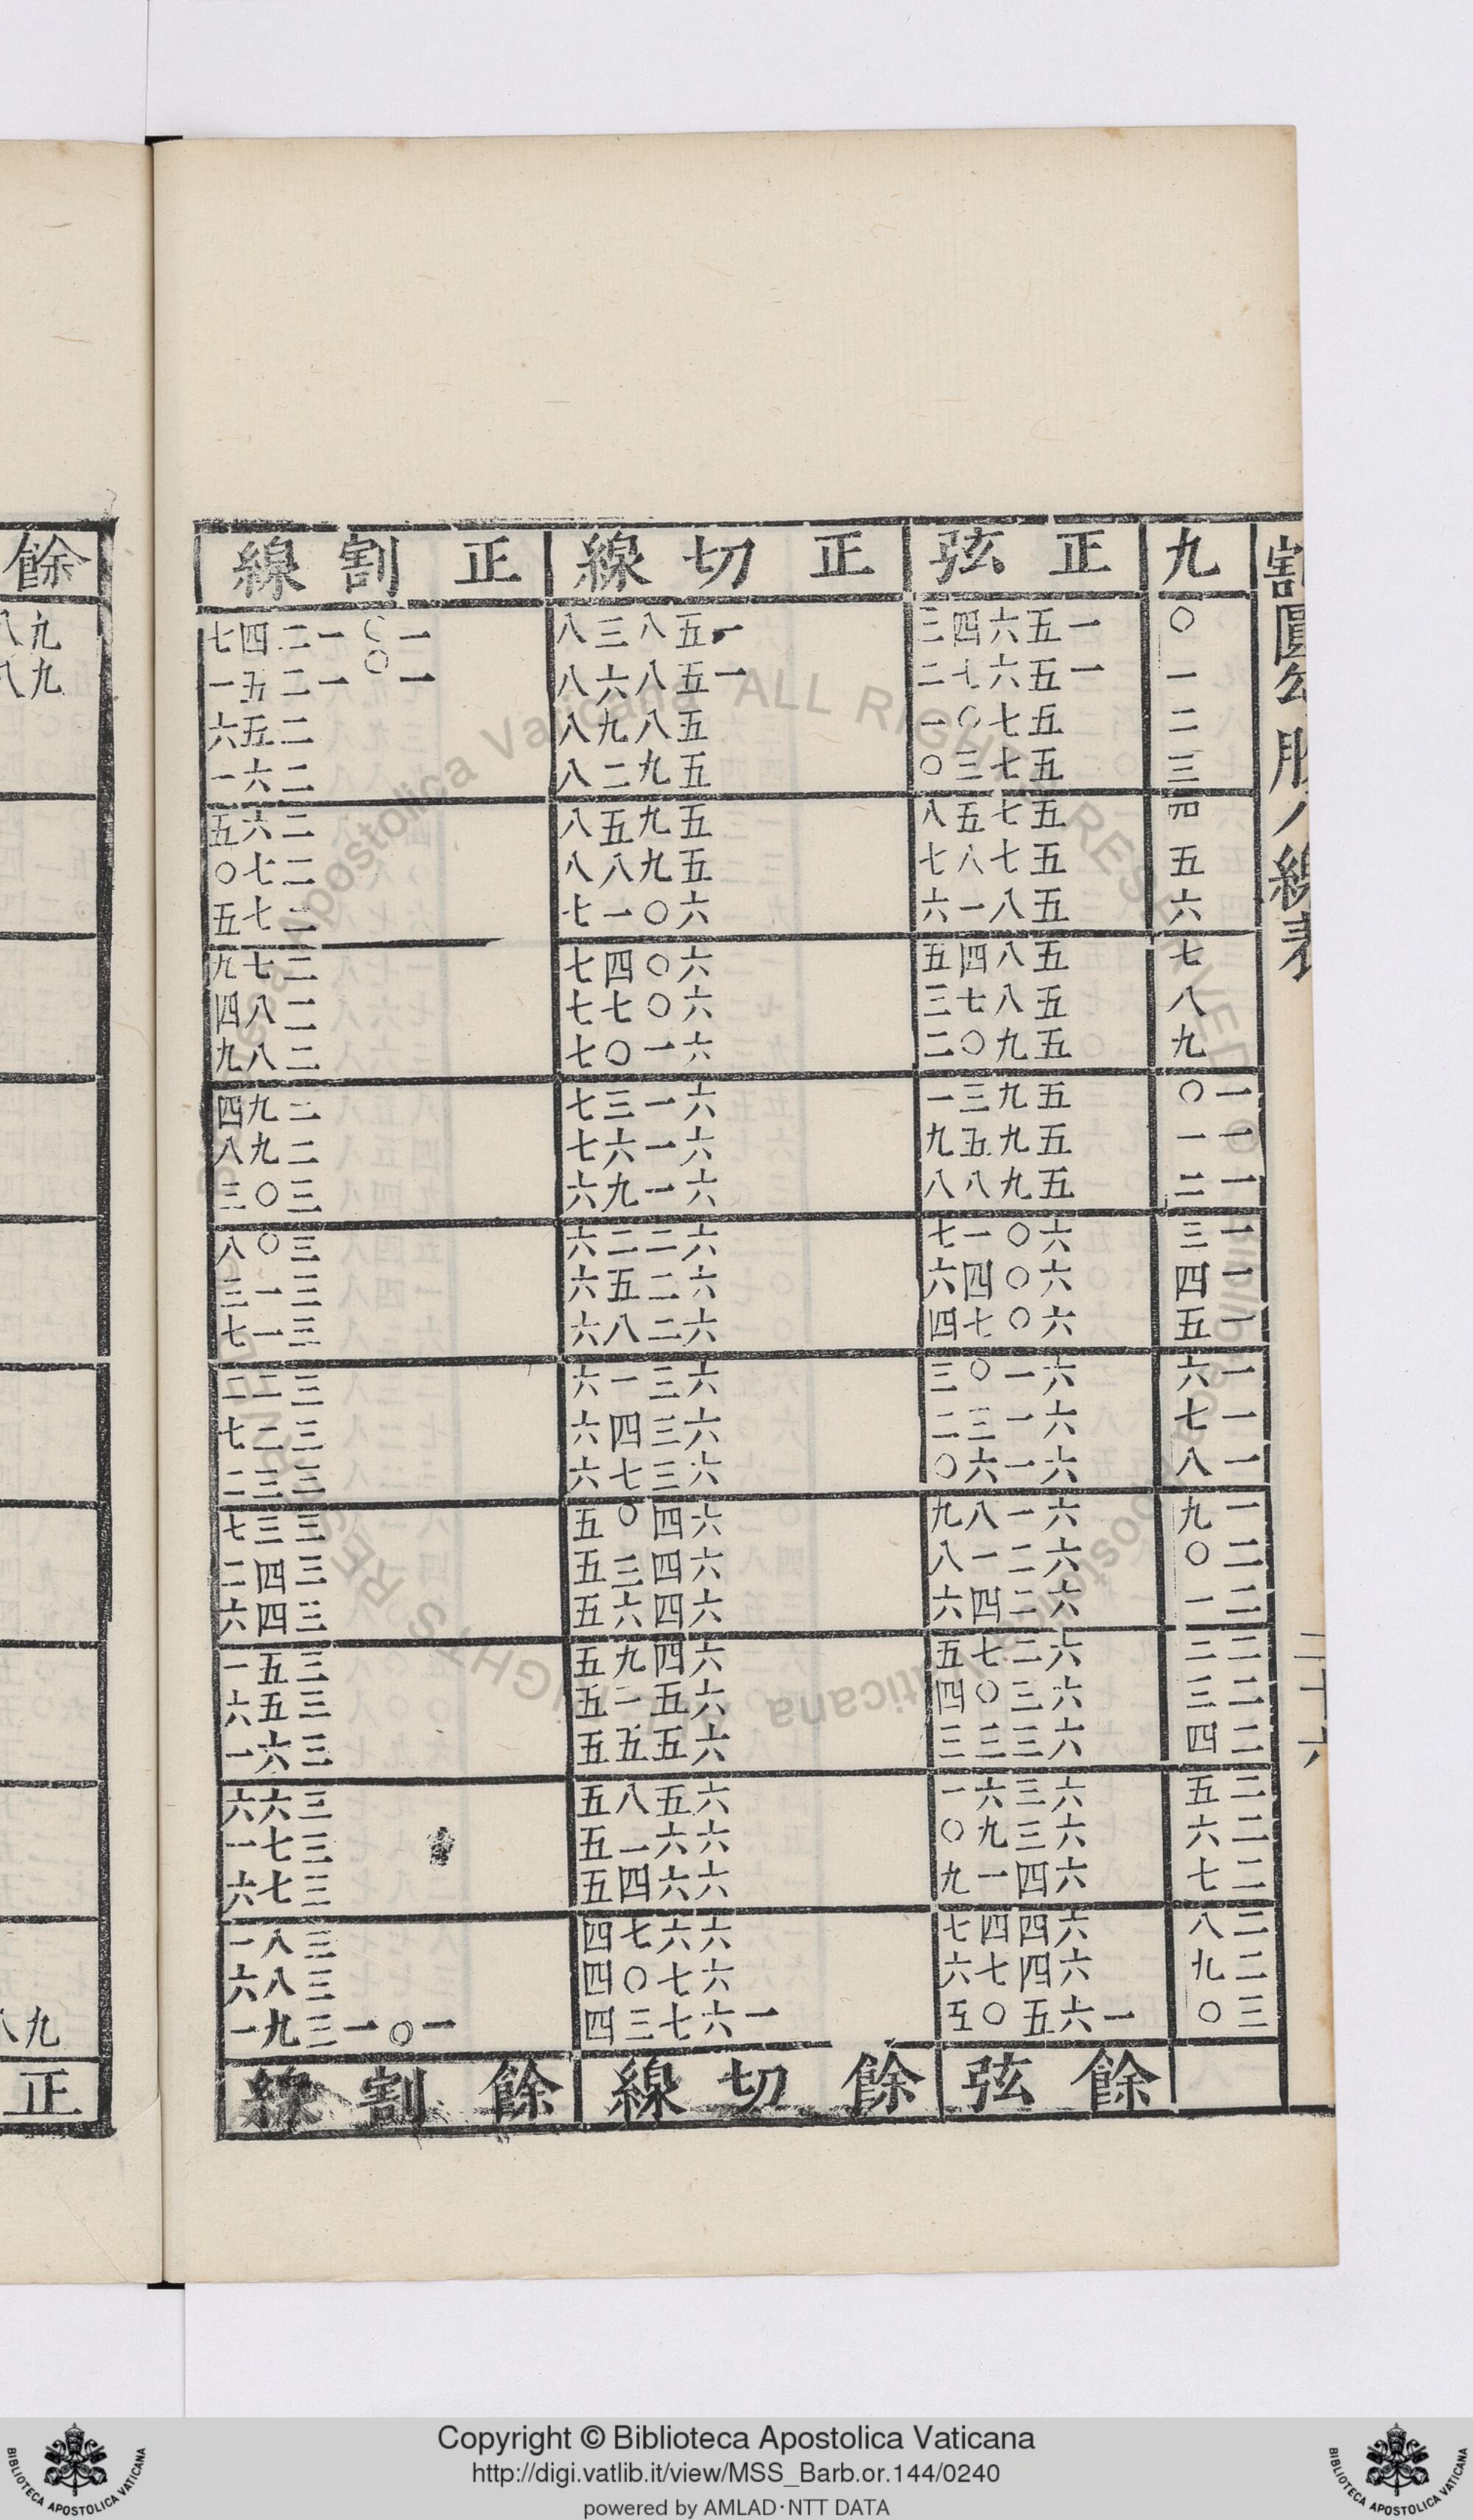 割圓勾股八線表
二十六
九 正弦 正切線 正割線
〇 一五六四三 一五八三八 一〇一二四七
一 一五六七二 一五八六八 一〇一二五一
二 五七〇一 五八九八 二五六
三 五七三〇 五九二八 二六一
四 五七五八 五九五八 二六五
五 五七八七 五九八八 二七〇
六 五八一六 六〇一七 二七五
七 五八四五 六〇四七 二七九
八 五八七三 六〇七七 二八四
九 五九〇二 六一〇七 二八九
一〇 五九三一 六一三七 二九四
一一 五九五九 六一六七 二九八
一二 五九八八 六一九六 三〇三
一三 六〇一七 六二二六 三〇八
一四 六〇四六 六二五六 三一三
一五 六〇七四 六二八六 三一七
一六 六一〇三 六三一六 三二二
一七 六一三二 六三四六 三二七
一八 六一六〇 六三七六 三三二
一九 六一八九 六四〇五 三三七
二〇 六二一八 六四三五 三四二
二一 六二四六 六四六五 三四六
二二 六二七五 六四九五 三五一
二三 六三〇四 六五二五 三五六
二四 六三三三 六五五五 三六一
二五 六三六一 六五八五 三六六
二六 六三九〇 六六一五 三七一
二七 六四一九 六六四五 三七六
二八 六四四七 六六七四 三八一
二九 六四七六 六七〇四 三八六
三〇 一六五〇五 一六七三四 一〇一三九一
餘弦 餘切線 餘割線
餘
九八
九八
九八
正
Copyright © Biblioteca Apostolica Vaticana
http://digi.vatlib.it/view/MSS_Barb.or.144/0240
powered by AMLAD·NTT DATA